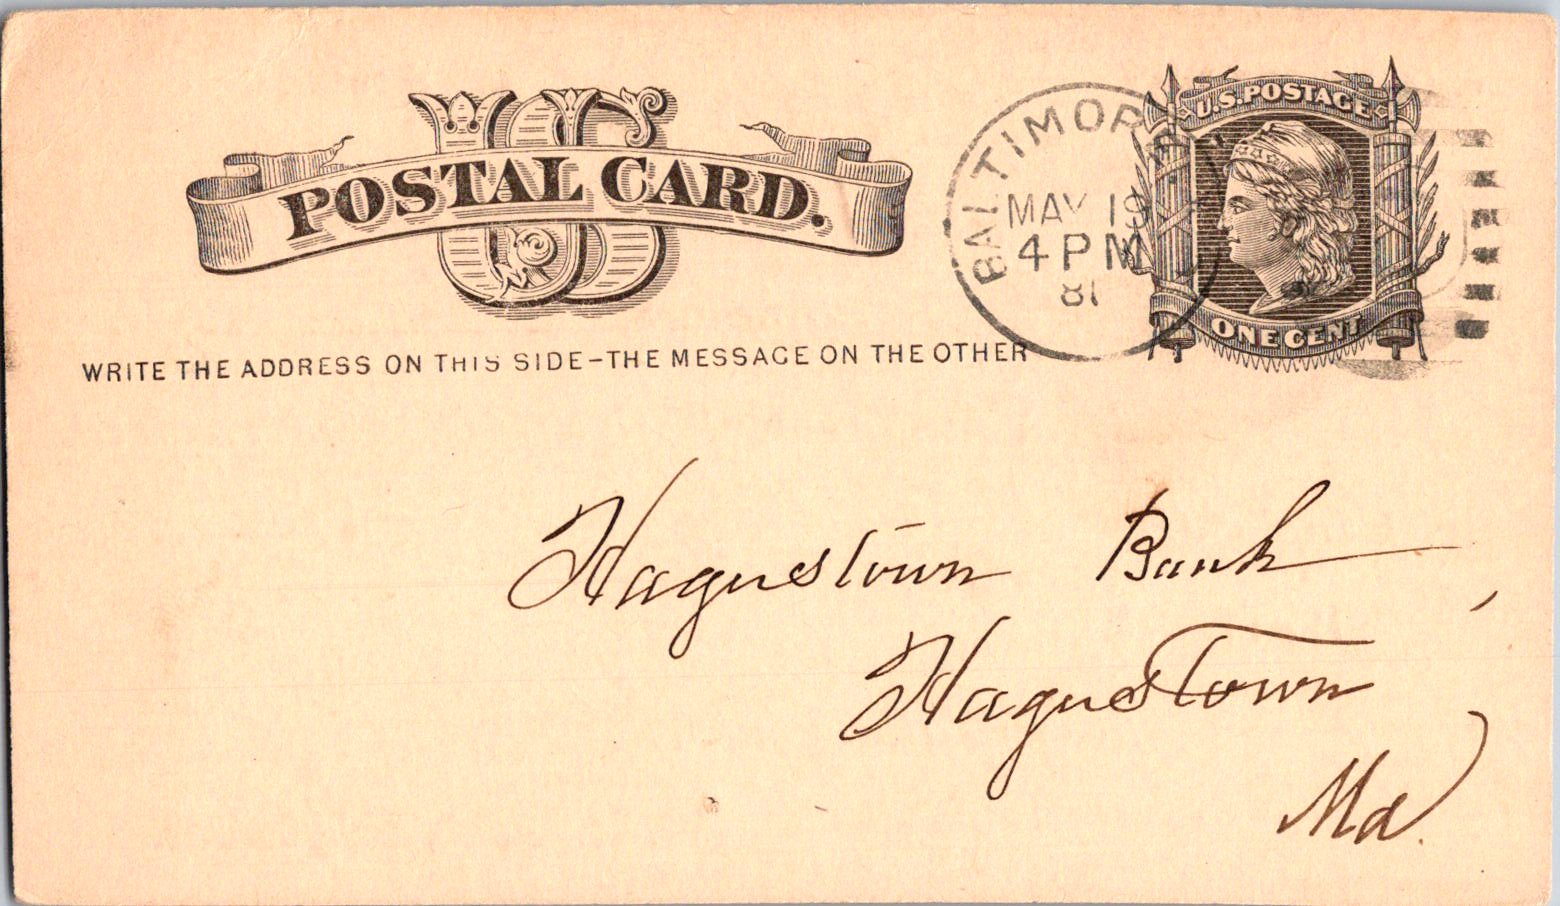 US
POSTAL CARD.
U.S. POSTAGE
ONE CENT
BALTIMORE
MAY 19
4 PM
81
WRITE THE ADDRESS ON THIS SIDE-THE MESSAGE ON THE OTHER
Hagerstown Bank,
Hagerstown
Md.